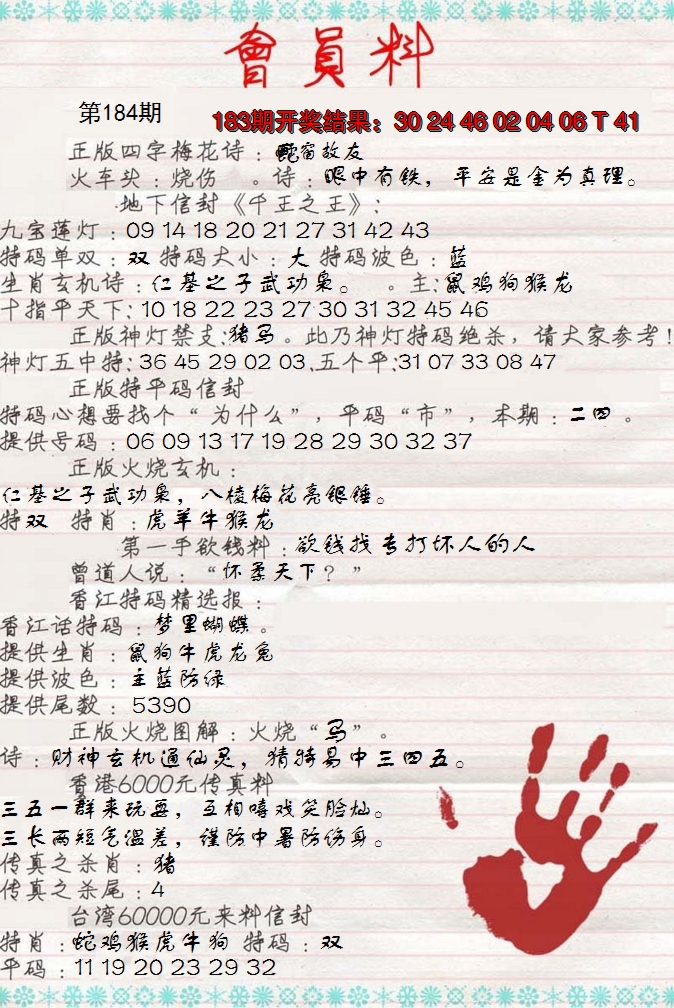 會員料
第184期
183期开奖结果：30 24 46 02 04 06 T 41
正版四字梅花诗：蛇窗故友
火车头：烧伤 。诗：眼中有铁，平安是金为真理。
地下信封《千王之王》：
九宝莲灯：09 14 18 20 21 27 31 42 43
特码单双：双 特码大小：大 特码波色：蓝
生肖玄机诗：仁基之子武功枭。 。主：鼠鸡狗猴龙
十指平天下：10 18 22 23 27 30 31 32 45 46
正版神灯禁支：猪马。此乃神灯特码绝杀，请大家参考！
神灯五中特：36 45 29 02 03.五个平：31 07 33 08 47
正版特平码信封
特码心想要找个“为什么”，平码“市”，本期：二四。
提供号码：06 09 13 17 19 28 29 30 32 37
正版火烧玄机：
仁基之子武功枭，八棱梅花亮银锤。
特双 特肖：虎羊牛猴龙
第一手欲钱料：欲钱找专打坏人的人
曾道人说：“怀柔天下？”
香江特码精选报：
香江话特码：梦里蝴蝶。
提供生肖：鼠狗牛虎龙兔
提供波色：主蓝防绿
提供尾数：5390
正版火烧图解：火烧“马”。
诗：财神玄机通仙灵，猜特易中三四五。
香港6000元传真料
三五一群来玩耍，互相嘻戏笑脸灿。
三长两短气温差，谨防中暑防伤身。
传真之杀肖：猪
传真之杀尾：4
台湾60000元来料信封
特肖：蛇鸡猴虎牛狗 特码：双
平码：11 19 20 23 29 32